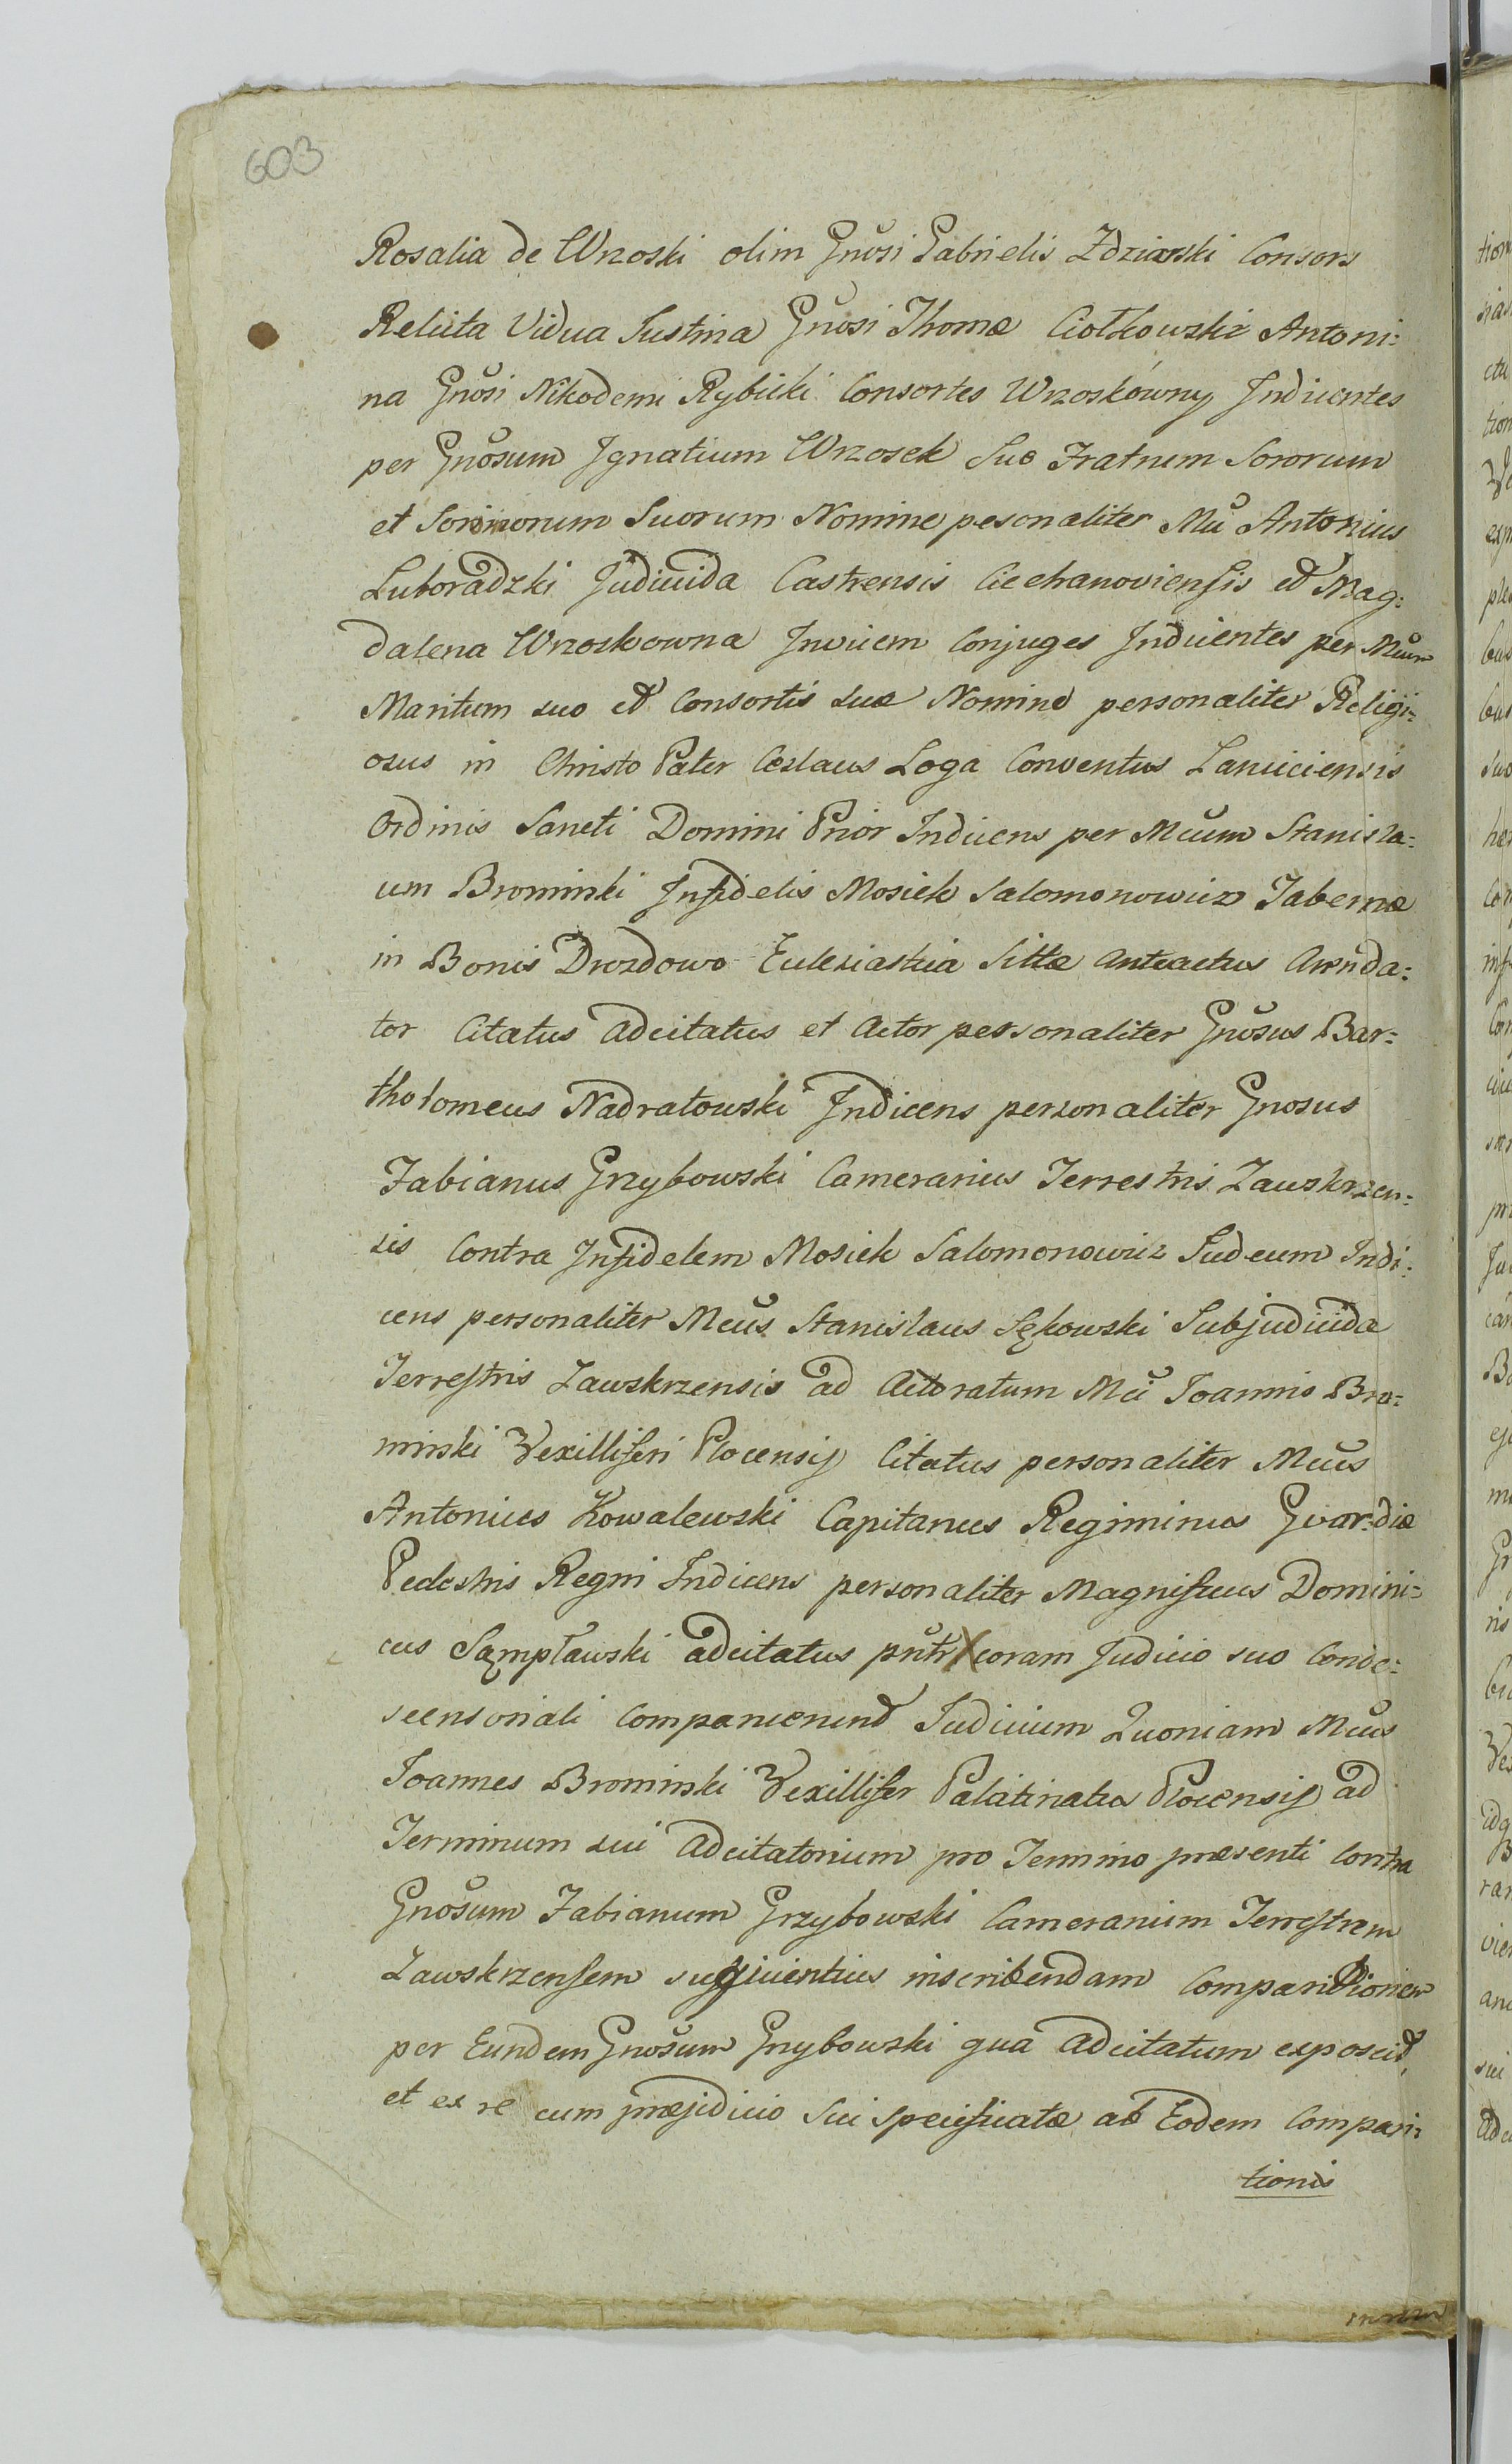 603
Rosalia de Wrzoski olim Gnosi Gabrielis Zdziarski Consors
Relicta Vidua Justina Gnosi Thomæ Ciołkowski Antoni:
na Gnosi Nikodemi Rybicki Consortes Wrzoskowny Indicentes
per Gnosum Ignatium Wrzosek Suo Fratrum Sororum
et Sorinorum Suorum Nomine pesonaliter Mci Antonius
Luboradzki Judicida Castrensis Ciechanoviensis et Mag:
dalena Wrzoskowna Invicem Conjuges Indicentes per Mcum
Maritum suo et Consortis suæ Nomine personaliter Religi:
osus in Christo Pater Ceslaus Loga Conventus
Ordinis Sancti Domini Prior Indicens per Mcum Stanisla:
um Brominski Infidelis Mosiek Salomonowicz Tabernæ
in Bonis Drozdowo Eclesiastica Sittæ anteactus Arenda:
tor Citatus adcitatus et Actor personaliter Gnosus Bar:
tholomeus Nadratowski Indicens personaliter Gnosus
Fabianus Grzybowski Camerarius Terrestris Zawskrzen:
sis Contra Infidelem Mosiek Salomonowicz Judeum Indi:
cens personaliter Mcus Stanislaus Sękowski Subjudicida
Terrestris Zawskrzensis ad Actoratum Mci Joannis Bro:
minski Vexilliferi Plocensis Citatus personaliter Mcus
Antonius Kowalewski Capitaneus Regiminis Gvardiæ
Pedestris Regni Indicens personaliter Magnificus Domini:
cus Sąmpławski adcitatus pntr coram Judicio suo Conde:
scensoriali Comparuerunt Judicium Quoniam Mcus
Joannes Brominski Vexillifer Palatinatus Plocensis ad
Terminum sui adcitatorium pro Termino præsenti Contra
Gnosum Fabianum Grzybowski Camerarium Terrestrem
Zawskrzensem inscribendam Comparitionem
per Eundem Gnosum Grzybowski qua adcitatum exposcit
et ex re cum præjudicio sui specificatæ ab Eodem Compari:
tionis